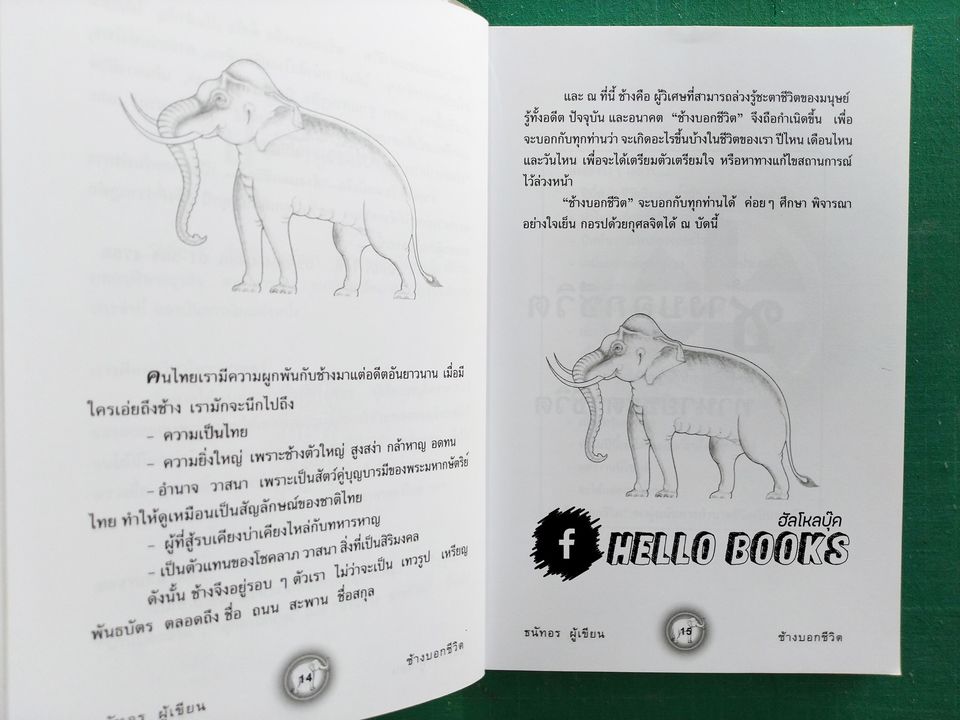 คนไทยเรามีความผูกพันกับช้างมาแต่อดีตอันยาวนาน เมื่อมี
ใครเอ่ยถึงช้าง เรามักจะนึกไปถึง
- ความเป็นไทย
- ความยิ่งใหญ่ เพราะช้างตัวใหญ่ สูงสง่า กล้าหาญ อดทน
- อำนาจ วาสนา เพราะเป็นสัตว์คู่บุญบารมีของพระมหากษัตริย์
ไทย ทำให้ดูเหมือนเป็นสัญลักษณ์ของชาติไทย
- ผู้ที่สู้รบเคียงบ่าเคียงไหล่กับทหารหาญ
- เป็นตัวแทนของโชคลาภ วาสนา สิ่งที่เป็นสิริมงคล
ดังนั้น ช้างจึงอยู่รอบ ๆ ตัวเรา ไม่ว่าจะเป็น เทวรูป เหรียญ
พันธบัตร ตลอดถึง ชื่อ ถนน สะพาน ชื่อสกุล
ผู้เขียน
14
ช้างบอกชีวิต
และ ณ ที่นี้ ช้างคือ ผู้วิเศษที่สามารถล่วงรู้ชะตาชีวิตของมนุษย์
รู้ทั้งอดีต ปัจจุบัน และอนาคต "ช้างบอกชีวิต" จึงถือกำเนิดขึ้น เพื่อ
จะบอกกับทุกท่านว่า จะเกิดอะไรขึ้นบ้างในชีวิตของเรา ปีไหน เดือนไหน
และวันไหน เพื่อจะได้เตรียมตัวเตรียมใจ หรือหาทางแก้ไขสถานการณ์
ไว้ล่วงหน้า
"ช้างบอกชีวิต" จะบอกกับทุกท่านได้ ค่อย ๆ ศึกษา พิจารณา
อย่างใจเย็น กอรปด้วยกุศลจิตได้ ณ บัดนี้
ฮัลโหลบุ๊ค
f HELLO BOOKS
ธนัทอร ผู้เขียน
15
ช้างบอกชีวิต